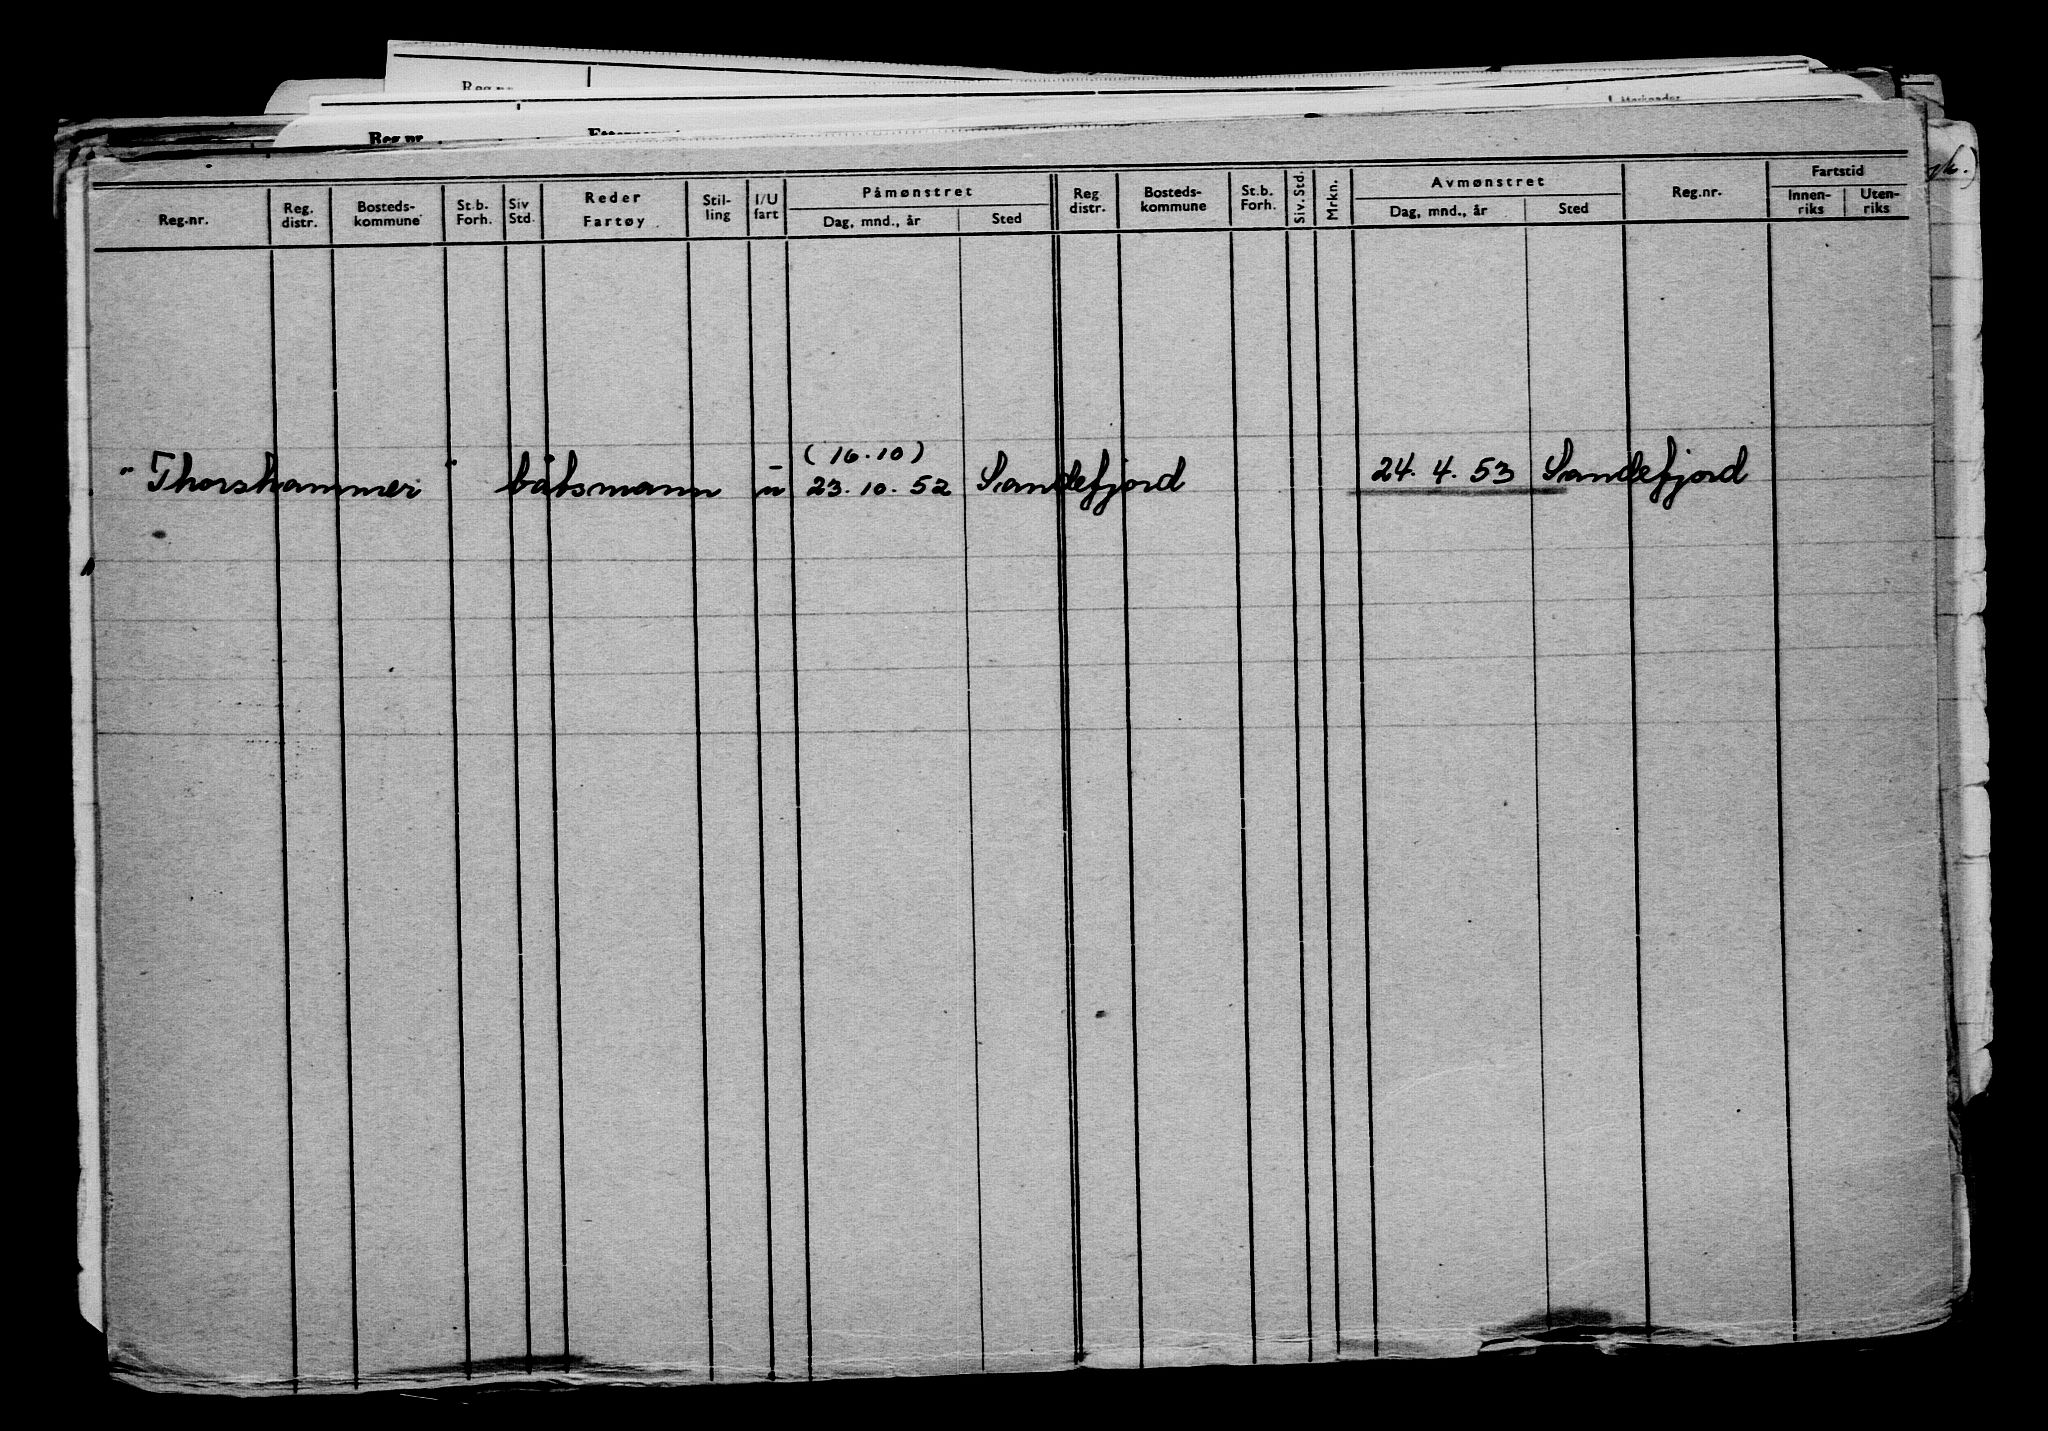 Reg.nr.
Reg.nr.
Reg.nr. Reg. distr. Bosteds- kommune St.b. Forh. Siv Std. Reder Fartøy Stil- ling I/U fart Påmønstret Dag, mnd., år Sted Reg distr. Bosteds- kommune St.b. Forh. Siv. Std. Mrkn. Avmønstret Dag, mnd., år Sted Reg.nr. Fartstid Innen- riks Uten- riks
(16.10)
"Thorshammer" båtsmann u 23.10.52 Sandefjord 24.4.53 Sandefjord